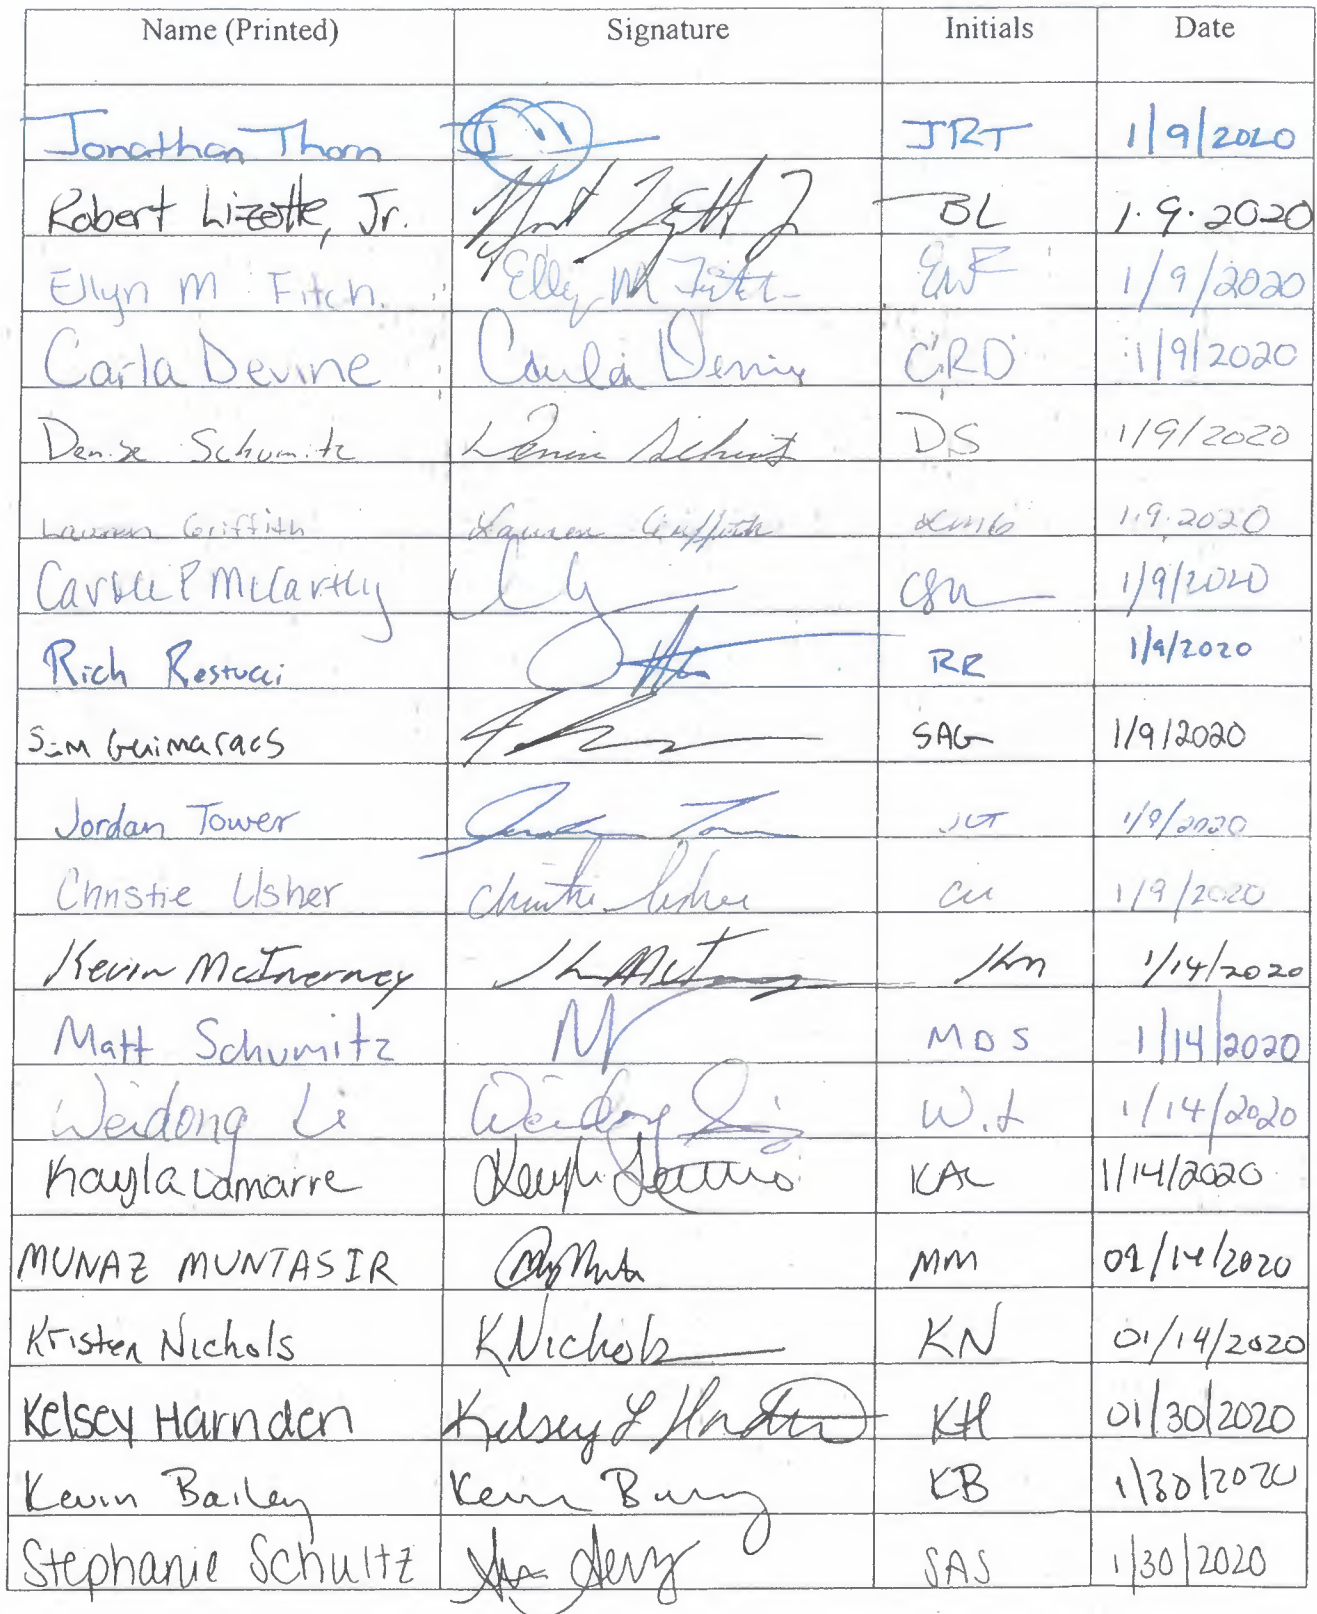 Name (Printed) Signature Initials Date
Jonathan Thorn JRT 1/9/2020
Robert Lizotte, Jr. BL 1.9.2020
Ellyn M Fitch Ellyn M Fitch EMF 1/9/2020
Carla Devine Carla Devine CRD 1/9/2020
Denise Schumitz Denise Schumitz DS 1/9/2020
Lauren Griffith Lauren Griffith LMG 1.9.2020
McCarthy 1/9/2020
Rich Restucci RR 1/9/2020
Sam Guimaraes SAG 1/9/2020
Jordan Tower Jordan Tower 1/9/2020
Christie Usher Christie Usher CU 1/9/2020
Kevin McInerney KM 1/14/2020
Matt Schumitz MDS 1/14/2020
Weidong Li Weidong Li W.L 1/14/2020
Kayla Lamarre Kayla Lamarre KAL 1/14/2020
MUNAZ MUNTASIR MM 01/14/2020
Kristen Nichols KNichols KN 01/14/2020
Kelsey Harnden Kelsey L Harnden KH 01/30/2020
Kevin Bailey Kevin KB 1/30/2020
Stephanie Schultz SAS 1/30/2020